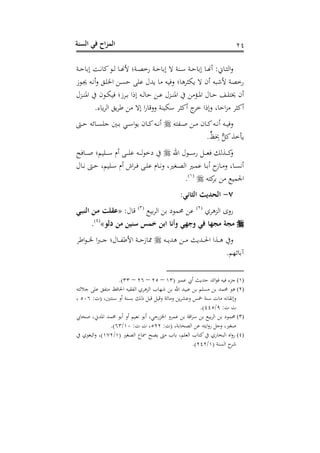 ٢٤ المزاح في السنة
والثاني: أنها إباحة سنة لا إباحة رخصة؛ لأنها لو كانت إباحة
رخصة لأشبه أن لا يكثرها؛ وفيه ما يدل على حسن الخلق وأنه يجوز
أن يختلف حال المؤمن في المنزل عن حاله إذا برز؛ فيكون في المنزل
أكثر مزاحا، وإذا خرج أكثر سكينة ووقارا إلا من طريق الرياء.
وفيه أنه كان من صفته ﷺ أنه كان يواسي بين جلسائه حتى
يأخذ كلٌّ بحظٍّ.
وكذلك فعل رسول الله ﷺ في دخوله على أم سليم؛ صافح
أنسا، ومازح أبا عمير الصغير، ونام على فراش أم سليم، حتى نال
الجميع من بركته (١).
٧- الحديث الثاني:
روى الزهري (٢) عن محمود بن الربيع (٣) قال: «عقلت من النبي
ﷺ مجة مجها في وجهي وأنا ابن خمس سنين من دلو» (٤).
وفي هذا الحديث من هديه ﷺ ممازحة الأطفال؛ جبرا لخواطر
آبائهم.
(١) جزء فيه فوائد حديث أبي عمير (١٣ – ٢٥ – ٢٦ – ٣٣).
(٢) هو محمد بن مسلم بن عبيد الله بن شهاب الزهري الفقيه الحافظ متفق على جلالته
وإتقانه مات سنة خمس وعشرين ومائة وقيل قبل ذلك بسنة أو سنتين، (ت: ٥٠٦،
ت ت: ٤٤٥/٩).
(٣) محمود بن الربيع بن سراقة بن عمرو الخزرجي، أبو نعيم أو أبو محمد المدني، صحابي
صغير، وجل روايته عن الصحابة، (ت: ٥٢٢، ت ت: ٦٣/١٠).
(٤) رواه البخاري في كتاب العلم، باب متى يصح سماع الصغير (١٧٢/١)، والبغوي في
شرح السنة (٢٤٢/١).